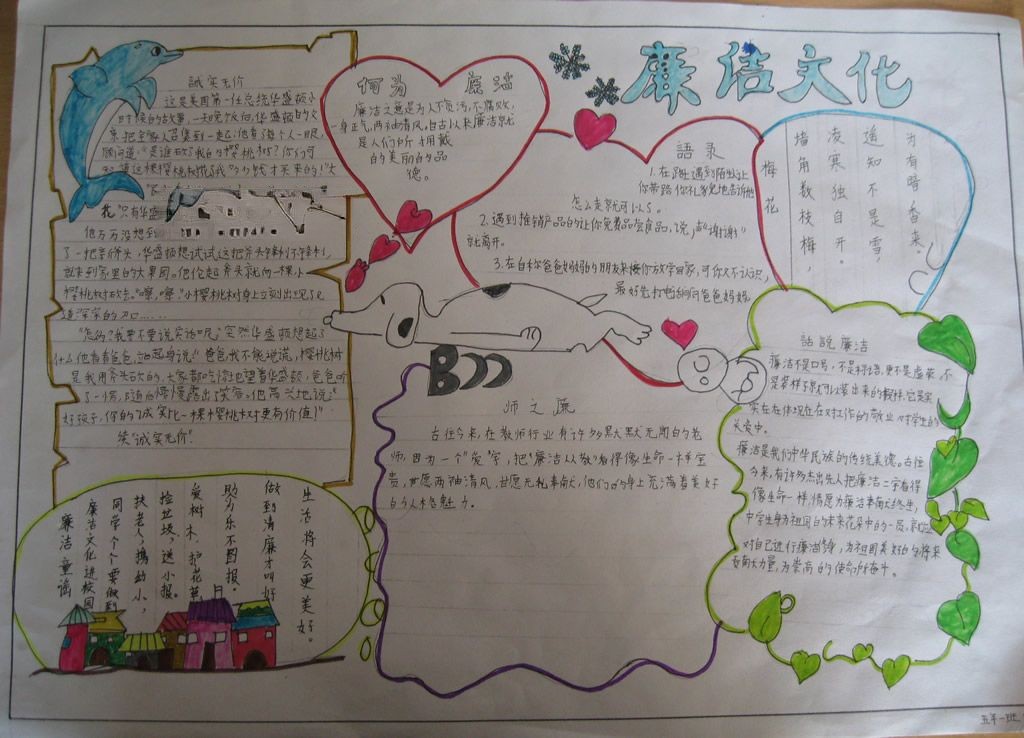 廉洁文化
誠实无价
这是美国第一任总统华盛顿小
时候的故事,一天晚饭后,华盛顿的父
亲把全家人召集到一起,他看
顾问道:"是谁砍了我的樱桃树?你们可
知道这棵樱桃树花了我
花"只有华盛
他万万没想到
了一把斧
就来到家里的大果园。他抡起斧头就向一棵小
樱桃树砍去。"嚓,嚓,"小樱桃树身上立刻出现了几
道深深的刀口……
"怎么办?我要不要说实话呢?突然华盛顿想起了
什么他看看爸爸,
是我用斧头砍的,大家都吃惊地望着华盛顿,爸爸听
了一愣,随后慢慢露出笑容。他高兴地说:"
好孩子,你的诚实比一棵樱桃树更有价值!"
笑"诚实无价"
何为 廉洁
廉洁之意是为人不贪污,不腐败,
一身正气,两袖清风,自古以来廉洁就
是人们所拥戴
的美丽的品
德。
語录
1.在路上遇到陌生让
你带路你礼貌地告诉他
怎么走就可以了。
2.遇到推销产品的让你免费品尝食品,说声"谢谢"
就离开。
3.在自称爸爸妈妈的朋友来接你放学回家,可你又不认识,
最好先打电话问爸爸妈妈。
梅花
墙角数枝梅,
凌寒独自开。
遥知不是雪,
为有暗香来。
师之廉
古往今来,在教师行业有许多默默无闻的老
师,因为一个"爱"字,把"廉洁从教"看得像生命一样宝
贵,甘愿两袖清风,甘愿无私奉献,他们的身上充满着美好
的人格魅力。
話说廉洁
廉洁不是口号,不是标语,更不是虚荣,不
是装样子就可以装出来的模样,它是实
实在在体现在在对工作的敬业对学生的
关爱中。
廉洁是我们中华民族的传统美德。古往
今来,有许多杰出先人把廉洁二字看得
像生命一样,情愿为廉洁奉献终生,
中学生身为祖国的未来花朵中的一员,就应
对自己进行廉洁修身,为祖国美好的将来
贡献力量,为崇高的使命所奋斗。
廉洁童谣
廉洁文化进校园
同学个个要做到
扶老人,携幼小,
捡垃圾,送小报。
爱树木,护花草,
助人为乐不图报。
做到清廉才叫好
生活将会更美好。
五年一班